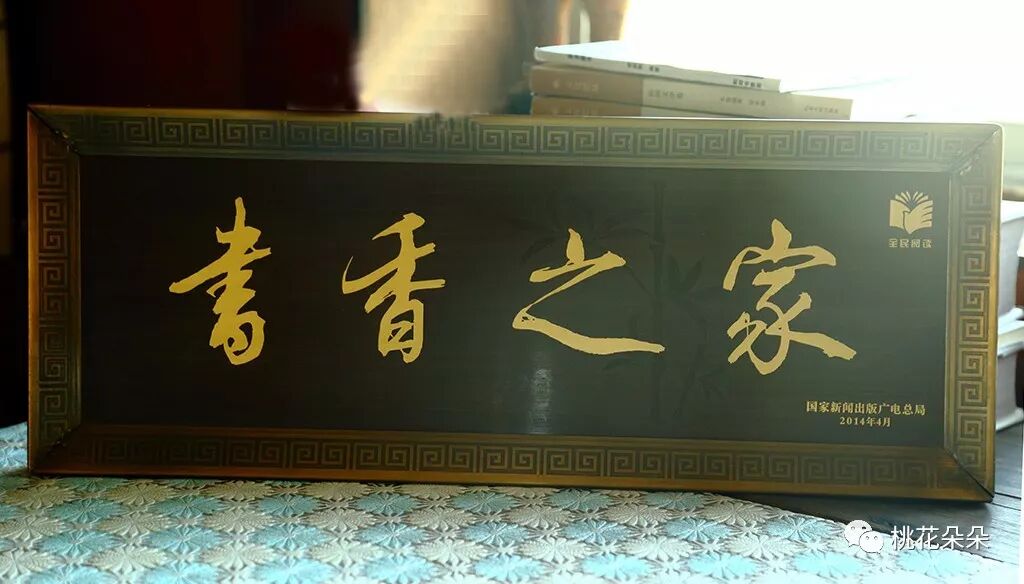 全民阅读
書香之家
国家新闻出版广电总局
2014年4月
桃花朵朵